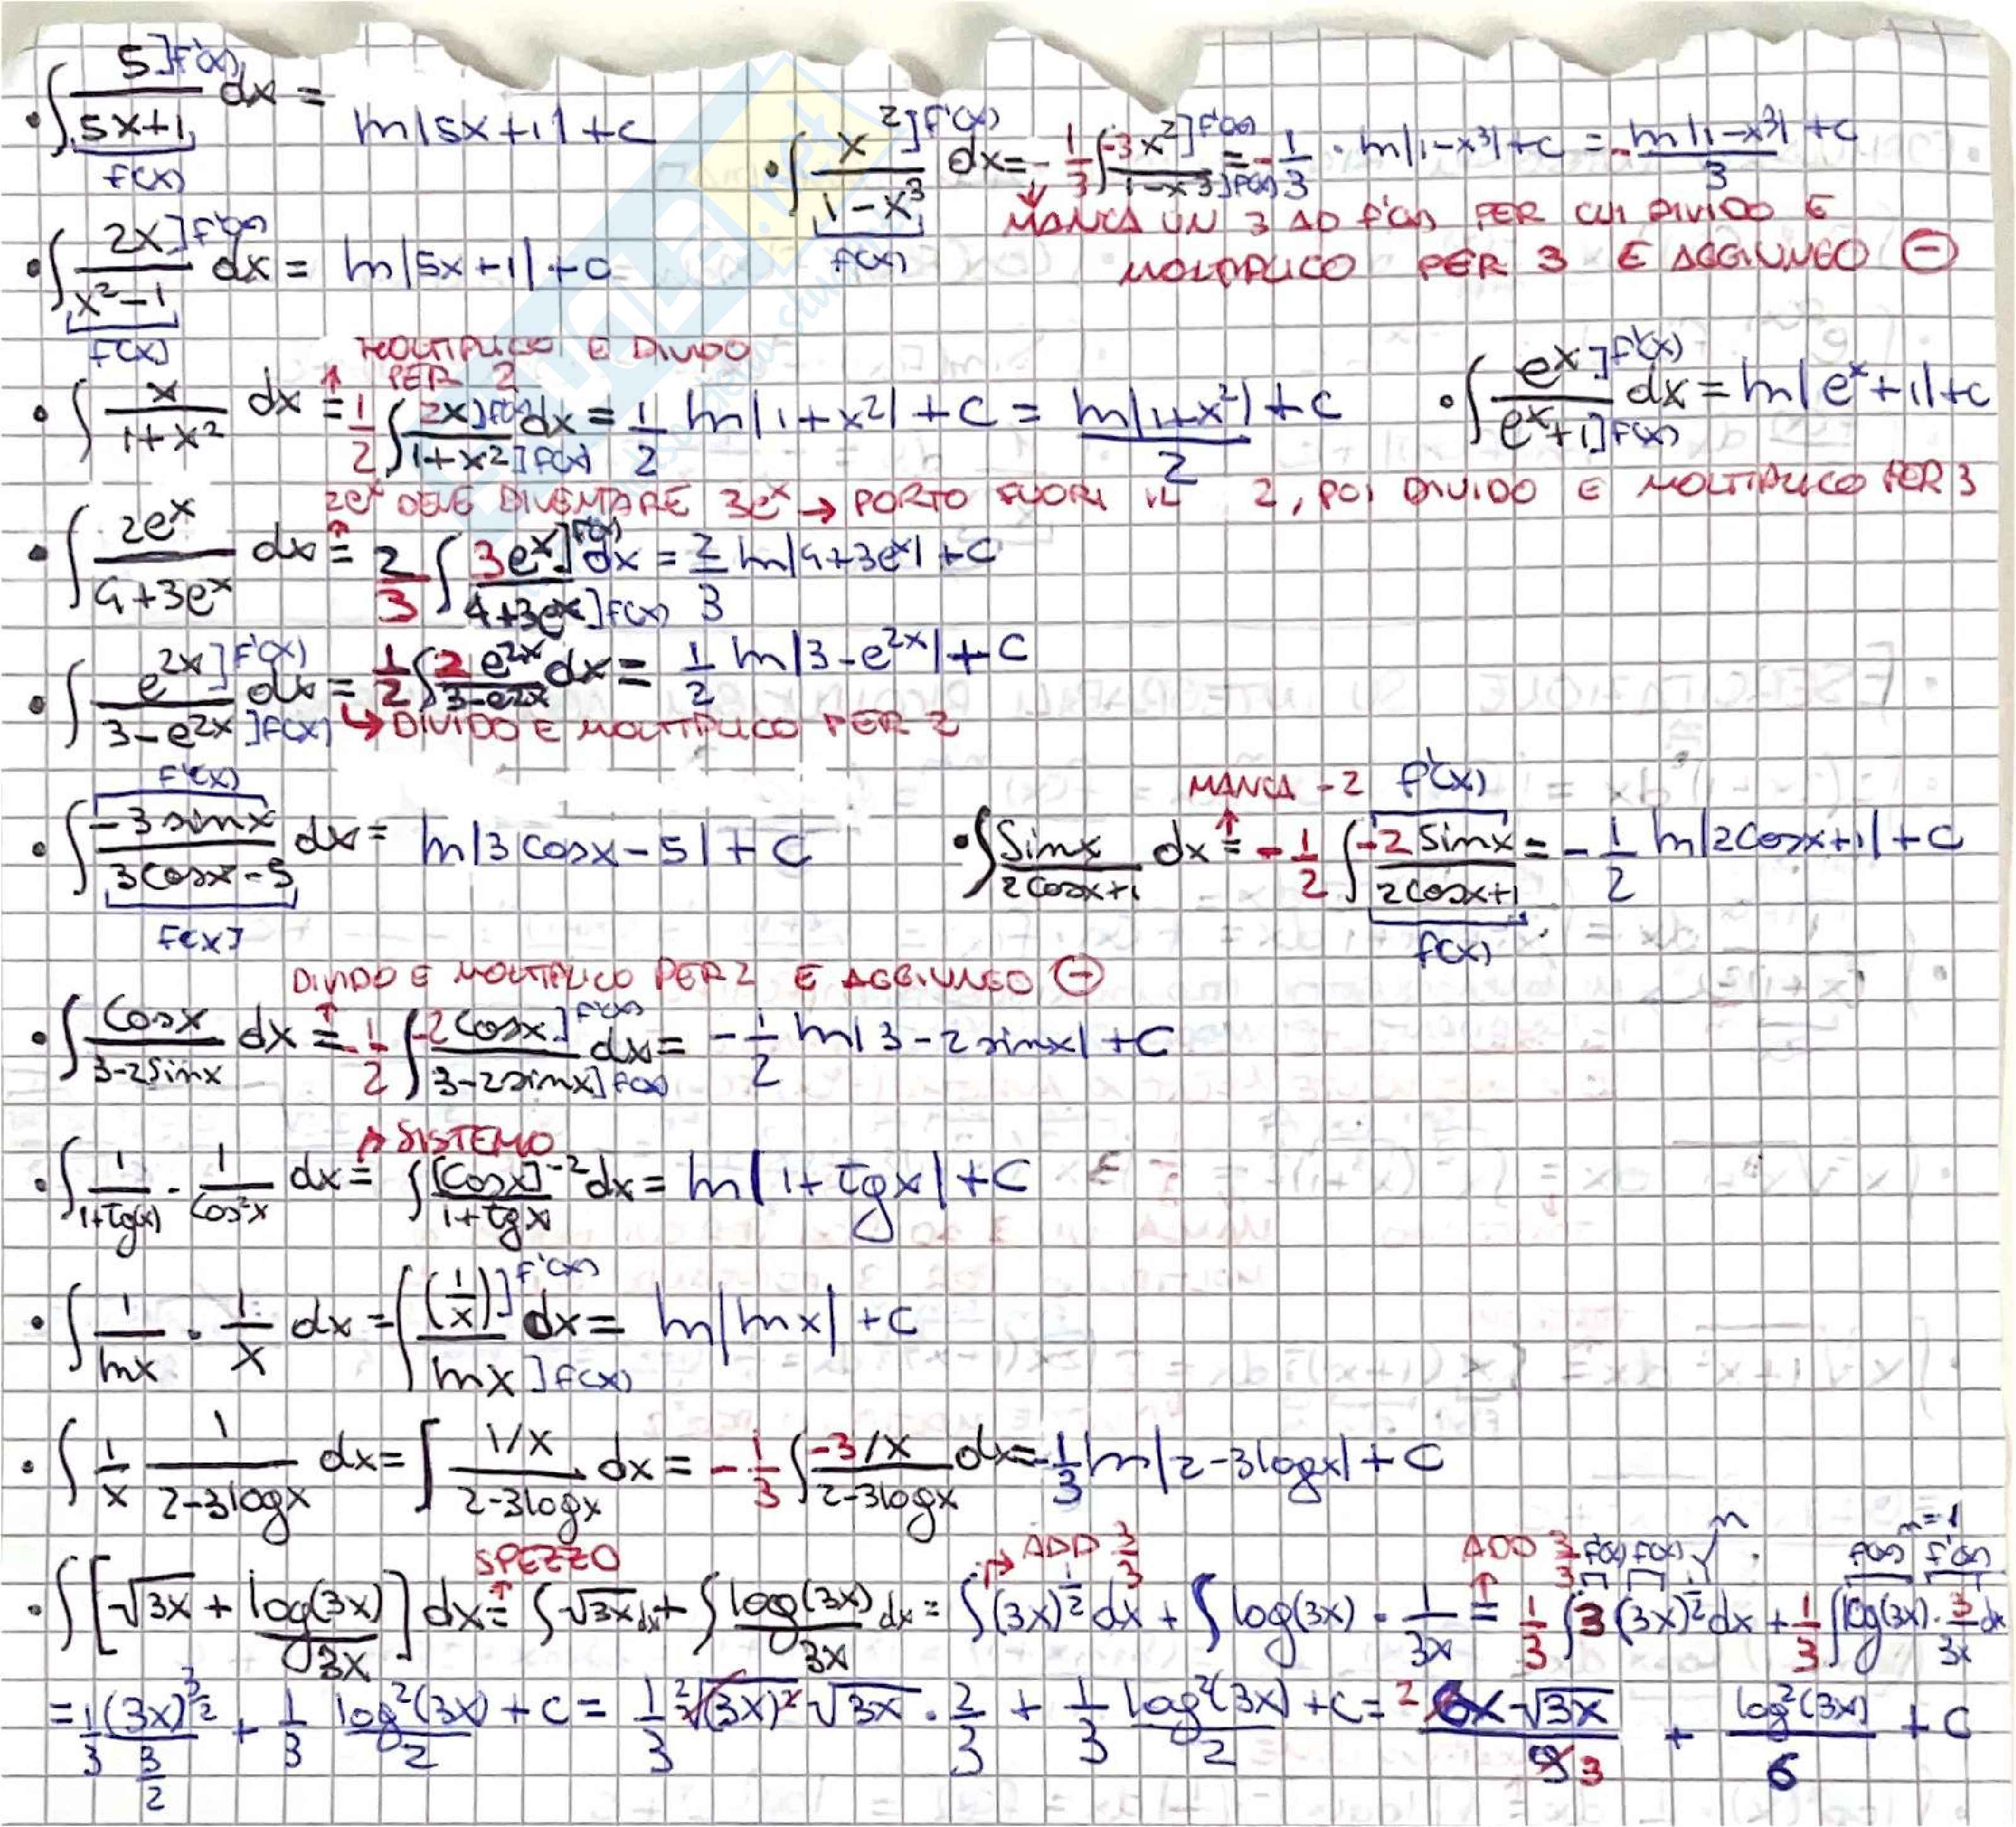 • ∫ 5]f'(x) / 5x+1 f(x) dx = ln|5x+1|+c
• ∫ x²]f'(x) / 1-x³ f(x) dx = -1/3 ∫ -3x²]f'(x) / 1-x³]f(x) = -1/3 · ln|1-x³|+c = -ln|1-x³|/3 +c
MANCA UN 3 AD f'(x) PER CUI DIVIDO E
MOLTIPLICO PER 3 E AGGIUNGO ⊖
• ∫ 2x]f'(x) / x²-1 f(x) dx = ln|5x+1|+c
MOLTIPLICO E DIVIDO
PER 2
• ∫ x / 1+x² dx = 1/2 ∫ 2x]f'(x) / 1+x²]f(x) dx = 1/2 ln|1+x²|+c = ln|1+x²|/2 +c
• ∫ e^x]f'(x) / e^x+1]f(x) dx = ln|e^x+1|+c
2e^x DEVE DIVENTARE 3e^x → PORTO FUORI IL 2, POI DIVIDO E MOLTIPLICO PER 3
• ∫ 2e^x / 4+3e^x dx = 2/3 ∫ 3e^x]f'(x) / 4+3e^x]f(x) dx = 2/3 ln|4+3e^x|+c
• ∫ e^2x]f'(x) / 3-e^2x]f(x) dx = 1/2 ∫ 2e^2x / 3-e^2x dx = 1/2 ln|3-e^2x|+c
↳ DIVIDO E MOLTIPLICO PER 2
• ∫ f'(x) -3sinx / 3cosx-5 f(x) dx = ln|3cosx-5|+c
MANCA -2 f'(x)
• ∫ sinx / 2cosx+1 dx = -1/2 ∫ -2sinx / 2cosx+1 f(x) = -1/2 ln|2cosx+1|+c
DIVIDO E MOLTIPLICO PER 2 E AGGIUNGO ⊖
• ∫ cosx / 3-2sinx dx = -1/2 ∫ -2cosx]f'(x) / 3-2sinx]f(x) dx = -1/2 ln|3-2sinx|+c
SISTEMO
• ∫ 1/1+tg(x) · 1/cos²x dx = ∫ [cosx]^-2 / 1+tgx dx = ln|1+tgx|+c
• ∫ 1/lnx · 1/x dx = ∫ (1/x)]f'(x) / lnx]f(x) dx = ln|lnx|+c
• ∫ 1/x 1/2-3logx dx = ∫ 1/x / 2-3logx dx = -1/3 ∫ -3/x / 2-3logx dx = -1/3 ln|2-3logx|+c
SPEZZO → ADD 3/3 ADD 3/3 f'(x) f(x) n f(x) n=1 f'(x)
• ∫ [√3x + log(3x)/3x] dx = ∫ √3x dx + ∫ log(3x)/3x dx = ∫ (3x)^1/2 dx + ∫ log(3x) · 1/3x = 1/3 ∫ 3 (3x)^1/2 dx + 1/3 ∫ log(3x) · 3/3x dx
= 1/3 (3x)^3/2 / 3/2 + 1/3 log²(3x)/2 + c = 1/3 ²√(3x)² √3x · 2/3 + 1/3 log²(3x)/2 + c = 2 6x√3x / 9 3 + log²(3x)/6 + c